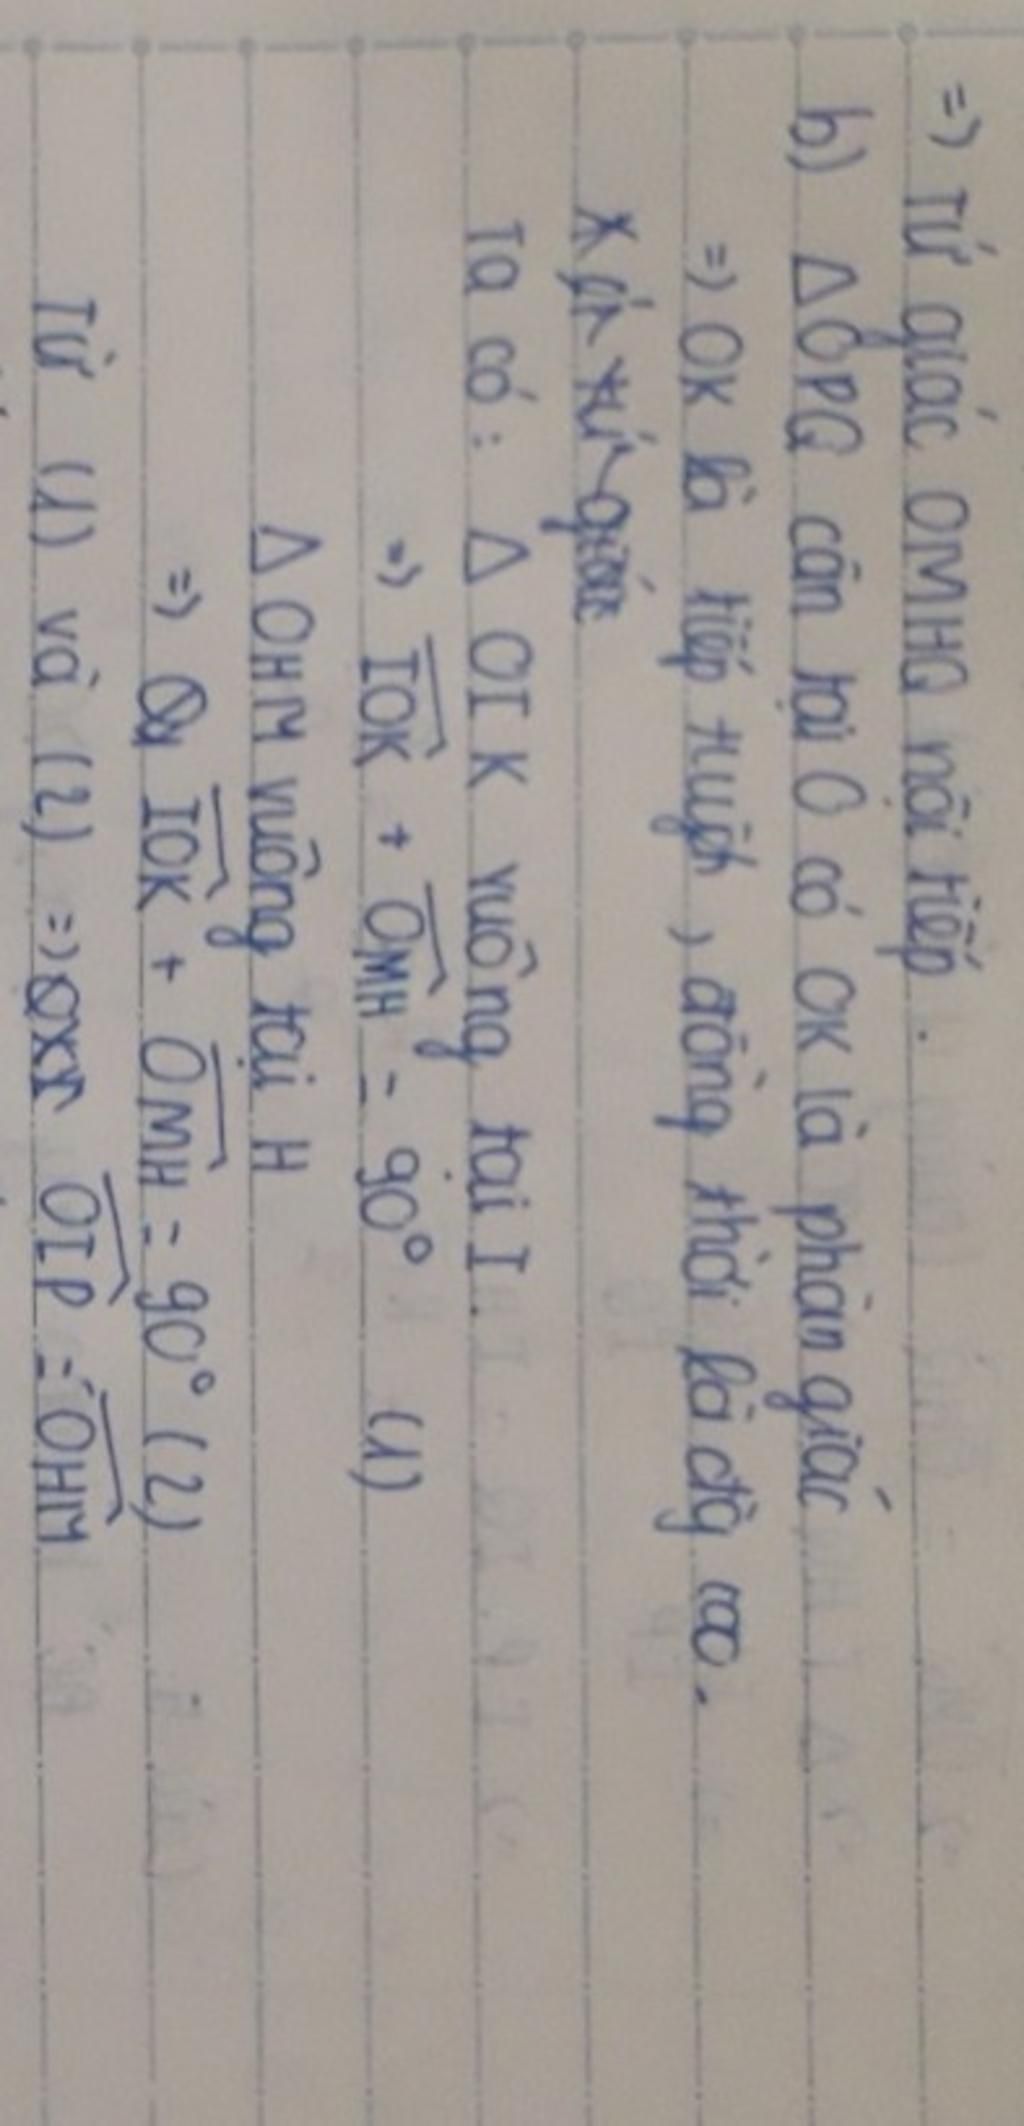 =) Tứ giác OMHQ nội tiếp.
b) Δ OPQ cân tại O có OK là phân giác
=) OK là tiếp tuyến, đồng thời là đg cao.
Xét tứ giác
Ta có: Δ OIK vuông tại I.
=) IOK + OMH = 90° (1)
Δ OHM vuông tại H
=) IOK + OMH = 90° (2)
Từ (1) và (2) =) OIP = OHM